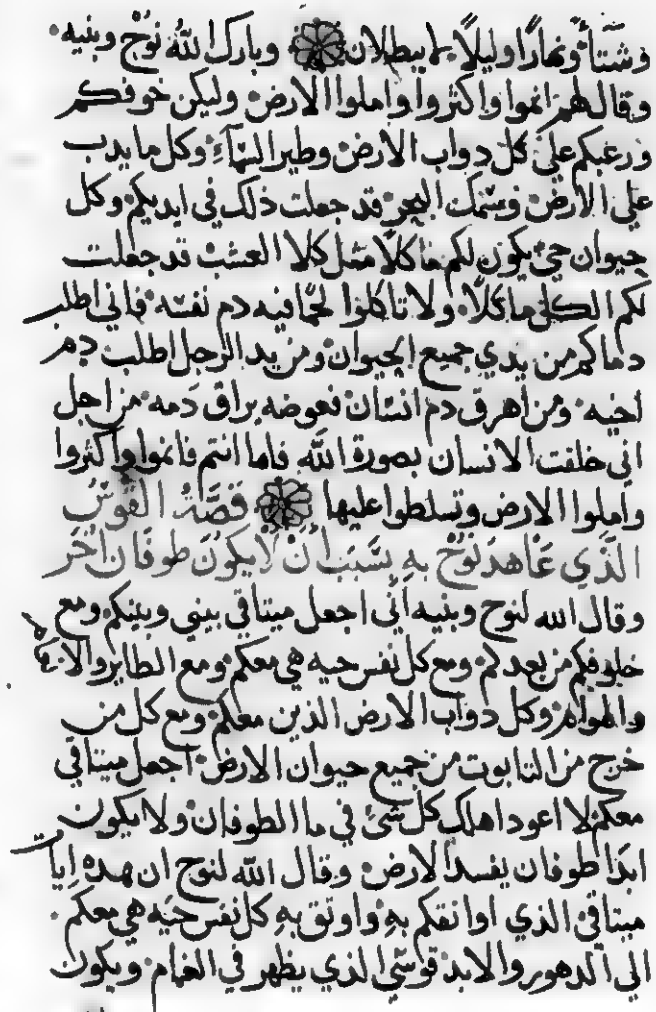 وشتاً ونهارًا وليلاً لا يبطلان وبارك الله نوْح وبنيه
وقال لهم انموا واكثروا واملوا الارض وليكن خوفكم
ورعبكم على كل دواب الارض وطير السمآء وكل ما يدب
على الارض وسمك البحر قد جعلت ذلك في ايديكم وكل
حيوان حي يكون لكم ماكلاً مثل كلا العشب قد جعلت
لكم الكل ماكلاً ولا تاكلوا لحمًا فيه دم نفسه فاني اطلب
دماكم من يدي جميع الحيوان ومن يد الرجل اطلب دم
اخيه ومن اهرق دم انسان فعوضه يراق دمه من اجل
اني خلقت الانسان بصورة الله فاما انتم فانموا واكثروا
واملوا الارض وتسلطوا عليها قصّة القوس
الذي عاهد نوح به بسبب أن لا يكون طوفان اخر
وقال الله لنوح وبنيه اني اجعل ميتاقي بيني وبينكم ومع
خلوفكم من بعدكم ومع كل نفس حيه هي معكم ومع الطاير
والهوام وكل دواب الارض الذين معكم ومع كل من
خرج من التابوت من جميع حيوان الارض اجعل ميتاقي
معكم لا اعود اهلك كل شئ في ما الطوفان ولا يكون
ابدًا طوفان يفسد الارض وقال الله لنوح ان هده ايات
ميتاقي الذي اواتقكم به واوتق به كل نفس حيه هي معكم
الي الدهور والابد قوسي الذي يظهر في الغمام ويكون